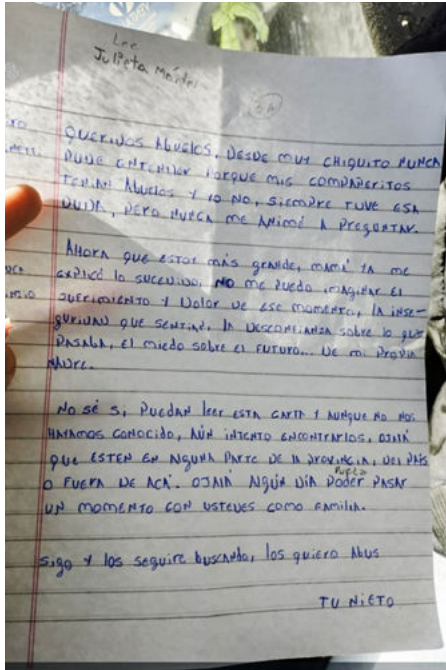 Lee
Julieta
5A
QUERIDOS ABUELOS, DESDE MUY CHIQUITO NUNCA
PUDE ENTENDER PORQUE MIS COMPAÑERITOS
TENIAN ABUELOS Y YO NO, SIEMPRE TUVE ESA
DUDA, PERO NUNCA ME ANIMÉ A PREGUNTAR.
AHORA QUE ESTOY MÁS GRANDE, MAMÁ YA ME
EXPLICÓ LO SUCEDIDO. NO ME PUEDO IMAGINAR EL
SUFRIMIENTO Y DOLOR DE ESE MOMENTO, LA INSE-
GURIDAD QUE SENTIAN, LA DESCONFIANZA SOBRE LO QUE
PASABA, EL MIEDO SOBRE EL FUTURO... DE MI PROPIA
MADRE.
NO SÉ SI PUEDAN LEER ESTA CARTA Y AUNQUE NO NOS
HAYAMOS CONOCIDO, AÚN INTENTO ENCONTRARLOS, OJALÁ
QUE ESTEN EN ALGUNA PARTE DE LA PROVINCIA, DEL PAÍS
O FUERA DE ACÁ. OJALÁ ALGÚN DÍA PODER PASAR
UN MOMENTO CON USTEDES COMO FAMILIA.
SIGO Y LOS SEGUIRE BUSCANDO, LOS QUIERO ABUS
TU NIETO